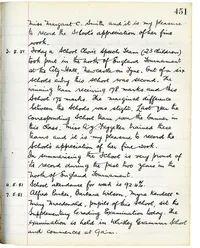 451
Miss Margaret C. Smith and it is my pleasure
to record the School's appreciation of her fine
work.
2. 5. 51 Today a School Choir Speech Team (23 children)
took part in the North of England Tournament
at the City Hall, Newcastle on Tyne. Out of a six
schools entry this school was second. The
winning team receiving 178 marks and this
School 174 marks. The marginal difference
between the schools was slight. Last year the
corresponding School team won the banner in
this class. Miss A.G. Foggetter trained these
teams and it is my pleasure to record the
School's appreciation of this fine work.
In summarising the School is very proud of
its record during the past two years in the
North of England Tournament.
4. 5. 51 School attendance for week is 92.4%
7. 5. 51 Alfred Green, Barbara Wilson, Myra Henderson &
Mary Macdonald, pupils of this School, sit the
Supplementary Grading Examination today. The
Examination is held in Whitley Grammar School
and commences at 9am.